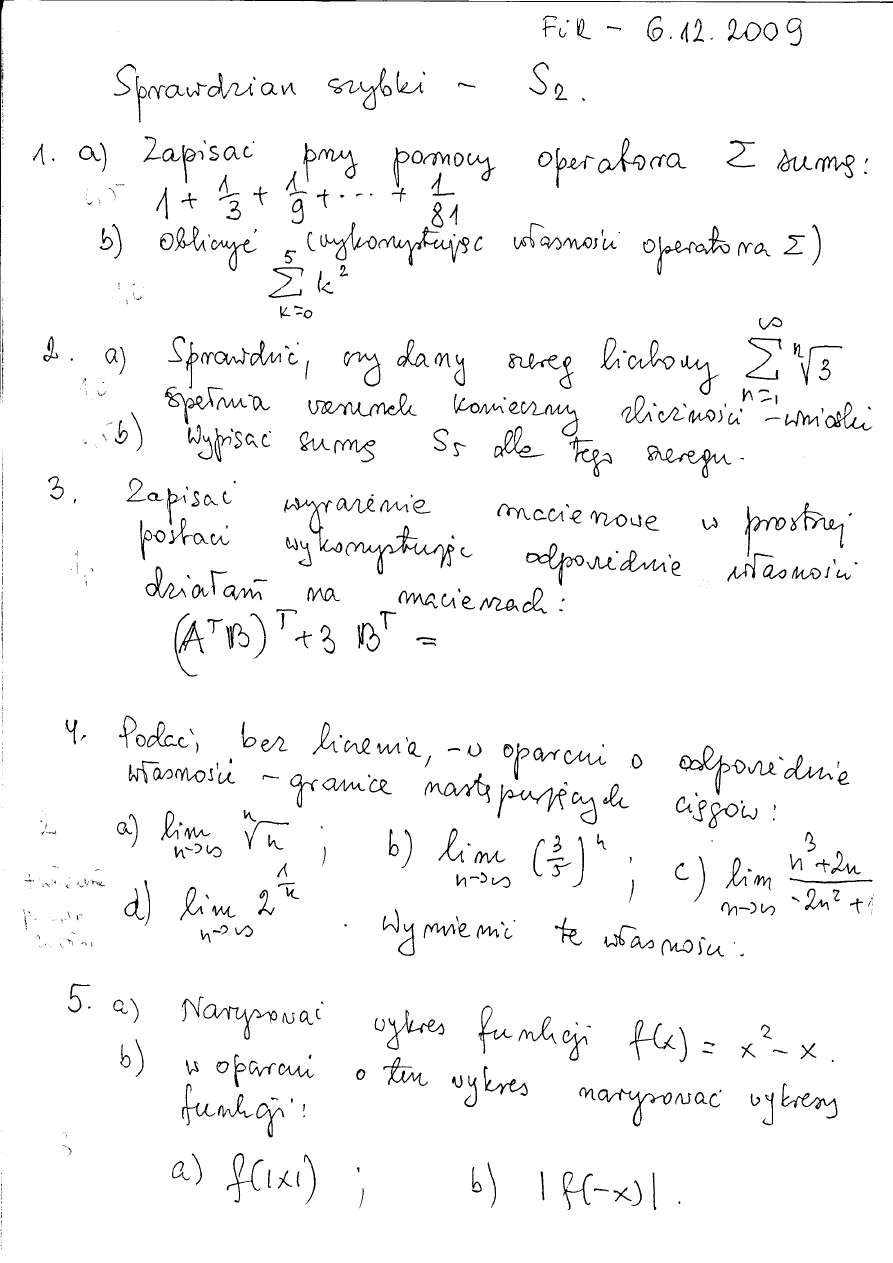 FiR - 6.12.2009
Sprawdzian szybki - S2.
1. a) Zapisać przy pomocy operatora Σ sumę:
1 + 1/3 + 1/9 + ... + 1/81
b) Obliczyć (wykorzystując własności operatora Σ)
∑_{k=0}^{5} k²
2. a) Sprawdzić, czy dany szereg liczbowy ∑_{n=1}^{∞} ⁿ√3
spełnia warunek konieczny zbieżności - wnioski
b) Wypisać sumę S5 dla tego szeregu.
3. Zapisać wyrażenie macierzowe w prostszej
postaci wykorzystując odpowiednie własności
działań na macierzach:
(AᵀB)ᵀ + 3 Bᵀ =
4. Podać, bez liczenia, - w oparciu o odpowiednie
własności - granice następujących ciągów:
a) lim_{n→∞} ⁿ√n ; b) lim_{n→∞} (3/5)ⁿ ; c) lim_{n→∞} (n³+2n)/(-2n²+
d) lim_{n→∞} 2^{1/n} . Wymienić te własności.
5. a) Narysować wykres funkcji f(x) = x² - x.
b) w oparciu o ten wykres narysować wykresy
funkcji:
a) f(|x|) ; b) |f(-x)|.